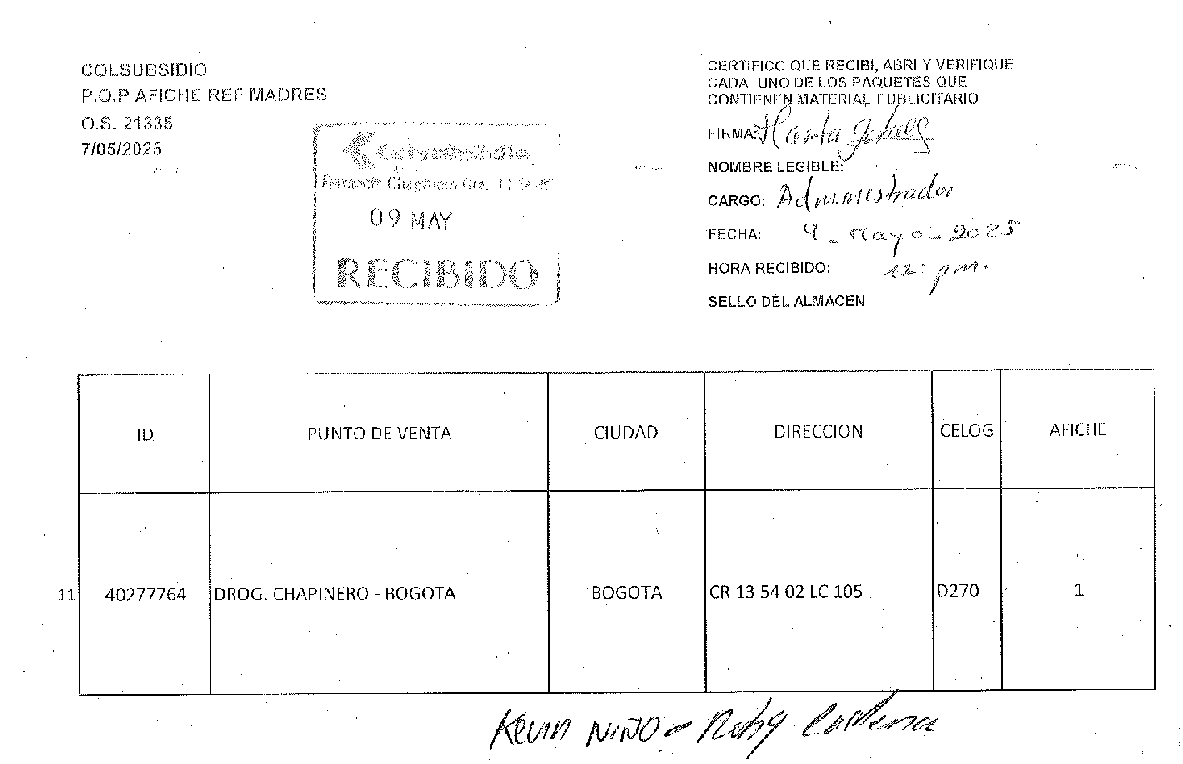 COLSUBSIDIO
P.O.P AFICHE REF MADRES
O.S. 21335
7/05/2025
Colsubsidio
09 MAY
RECIBIDO
CERTIFICO QUE RECIBI, ABRI Y VERIFIQUE
CADA UNO DE LOS PAQUETES QUE
CONTIENEN MATERIAL PUBLICITARIO
FIRMA:
NOMBRE LEGIBLE:
CARGO: Administrador
FECHA: 9 - Mayo - 2025
HORA RECIBIDO: 12: pm.
SELLO DEL ALMACEN
ID PUNTO DE VENTA CIUDAD DIRECCION CELOG AFICHE
11 40277764 DROG. CHAPINERO - BOGOTA BOGOTA CR 13 54 02 LC 105 D270 1
Kevin NIÑO - Ruby